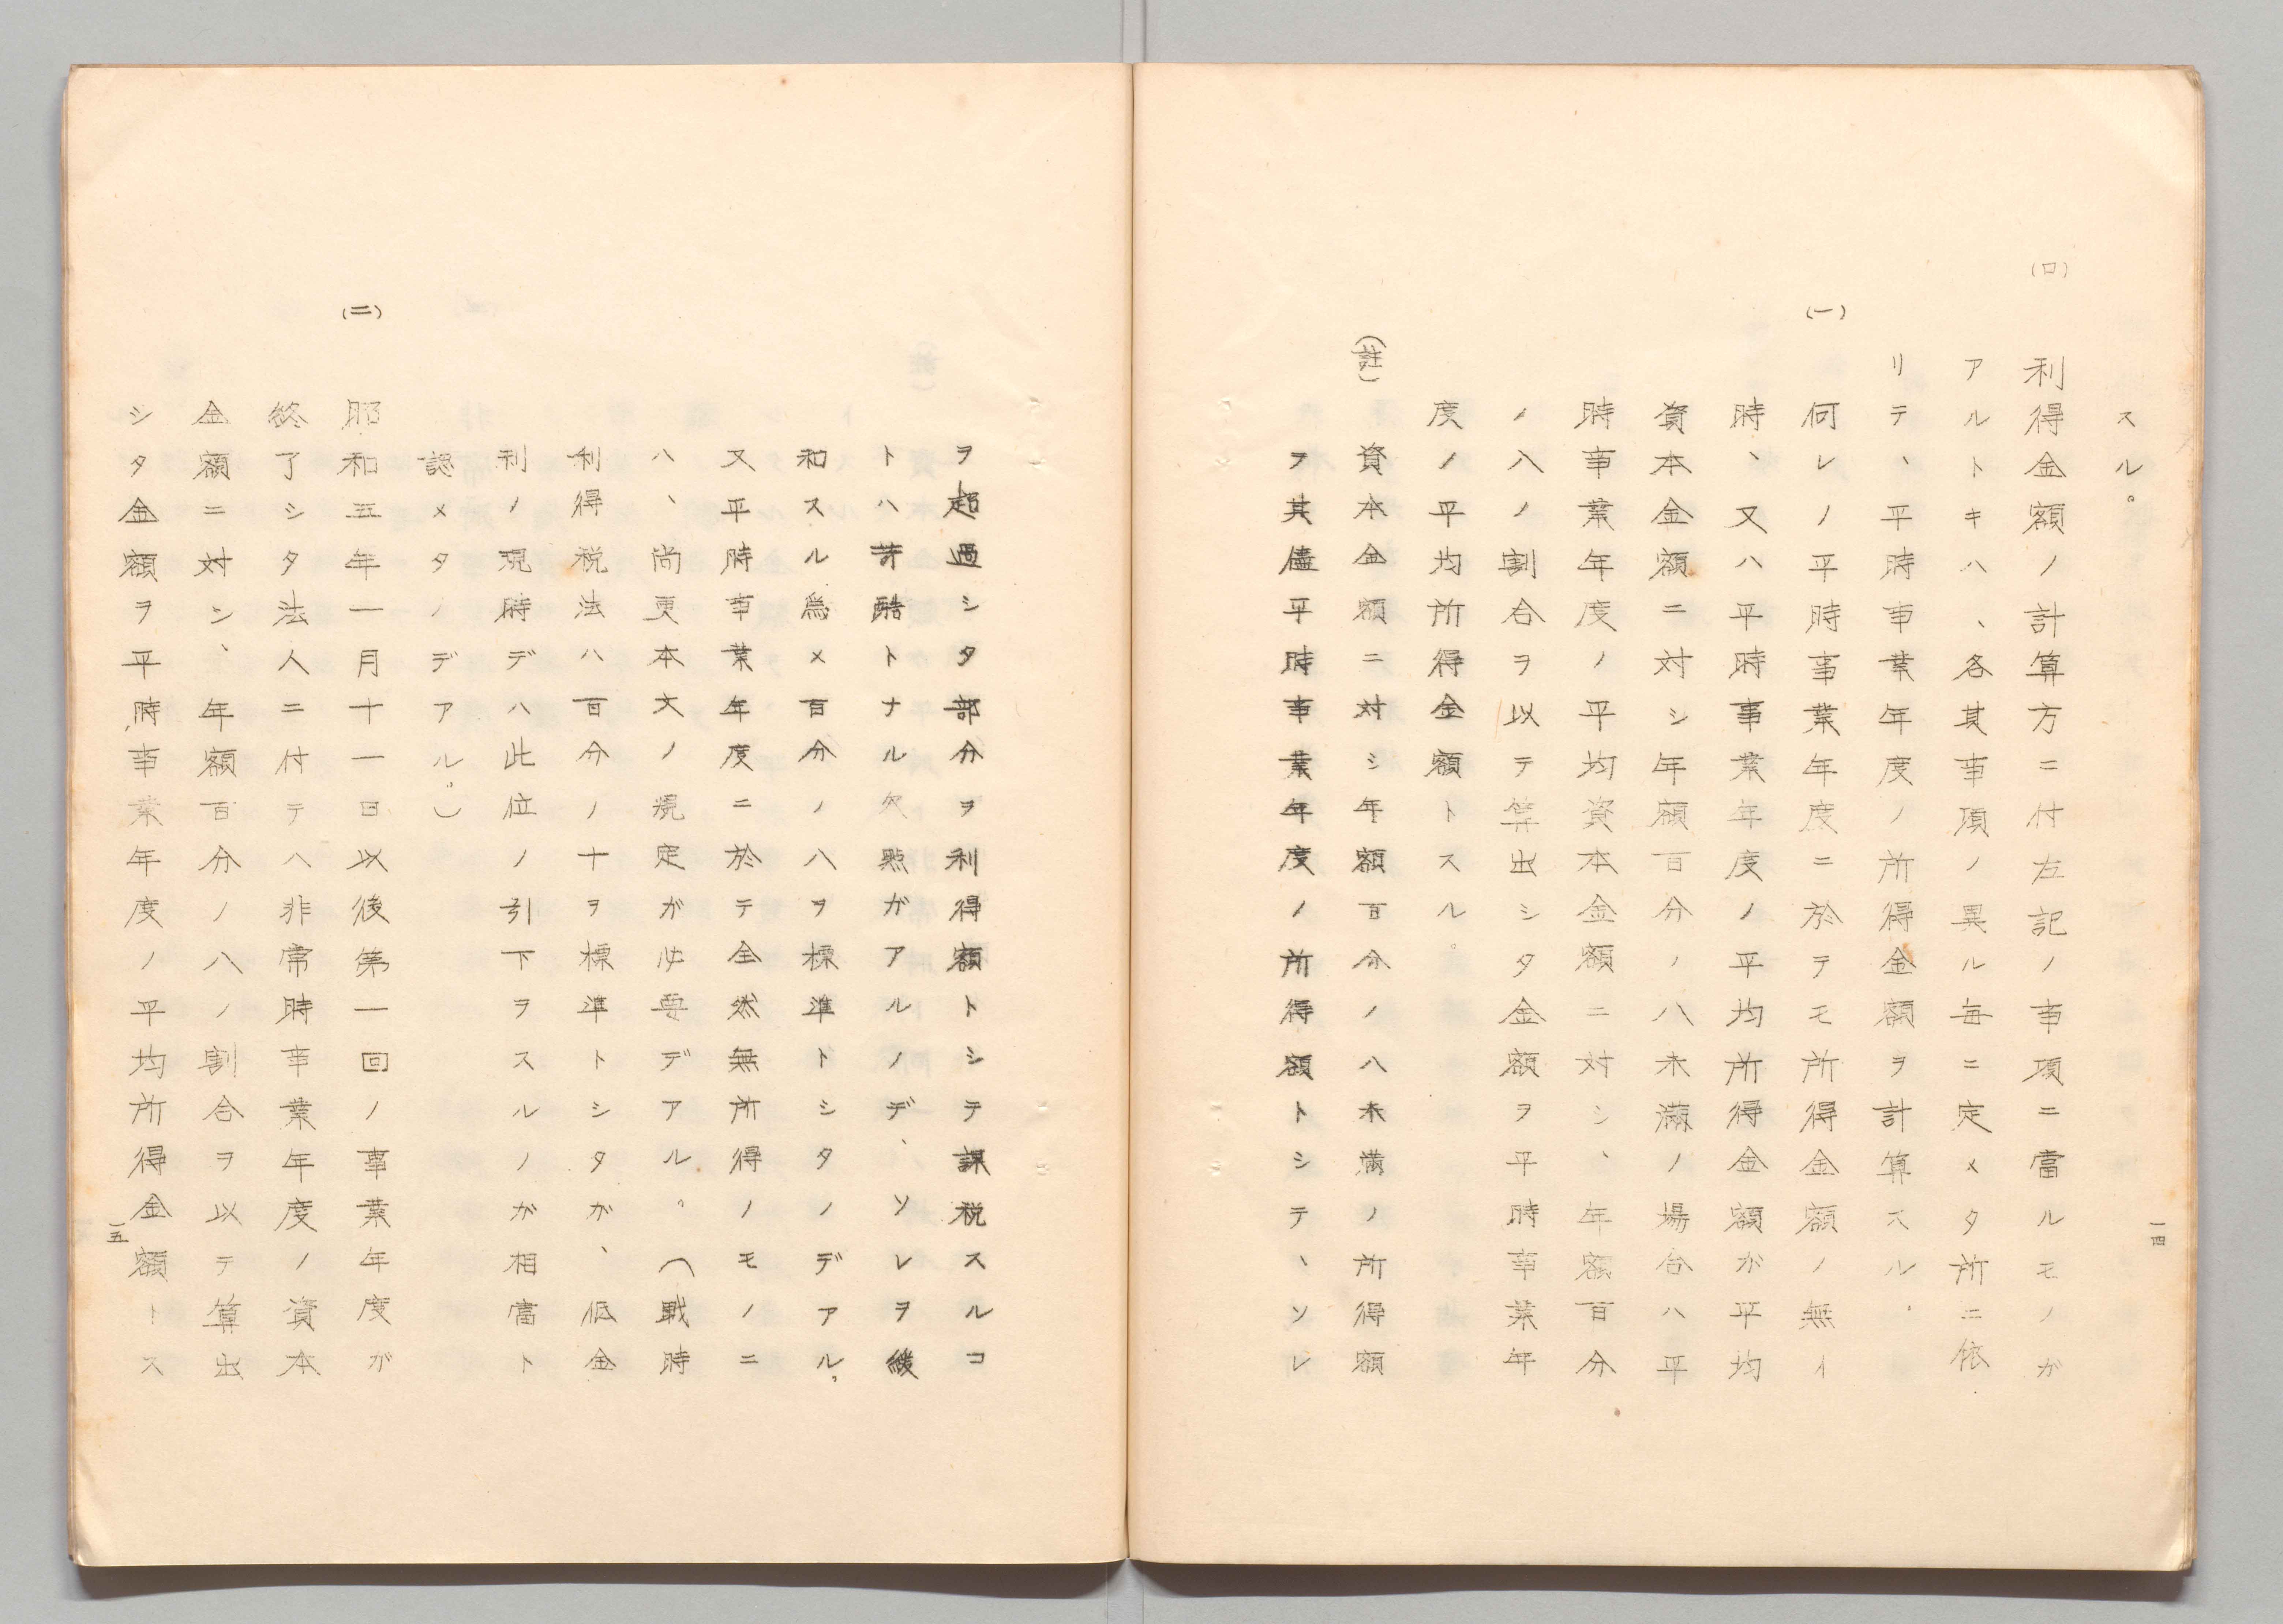 スル。
(ロ)
利得金額ノ計算方ニ付左記ノ事項ニ當ルモノガ
アルトキハ、各其事項ノ異ル毎ニ定メタ所ニ依
リテ、平時事業年度ノ所得金額ヲ計算スル。
(一)
何レノ平時事業年度ニ於テモ所得金額ノ無イ
時、又ハ平時事業年度ノ平均所得金額ガ平均
資本金額ニ対シ年額百分ノ八未滿ノ場合ハ平
時事業年度ノ平均資本金額ニ対シ、年額百分
ノ八ノ割合ヲ以テ算出シタ金額ヲ平時事業年
度ノ平均所得金額トスル。
(註)
資本金額ニ対シ年額百分ノ八未満ノ所得額
ヲ其儘平時事業年度ノ所得額トシテ、ソレ
一四
ヲ超過シタ部分ヲ利得額トシテ課税スルコ
トハ苛酷トナル欠點ガアルノデ、ソレヲ緩
和スル爲メ百分ノ八ヲ標準トシタノデアル。
又平時事業年度ニ於テ全然無所得ノモノニ
ハ、尚更本文ノ規定ガ必要デアル。(戰時
利得税法ハ百分ノ十ヲ標準トシタガ、低金
利ノ現時デハ此位ノ引下ヲスルノガ相當ト
認メタノデアル。)
(二)
昭和五年一月十一日以後第一回ノ事業年度ガ
終了シタ法人ニ付テハ非常時事業年度ノ資本
金額ニ対シ、年額百分ノ八ノ割合ヲ以テ算出
シタ金額ヲ平時事業年度ノ平均所得金額トス
一五